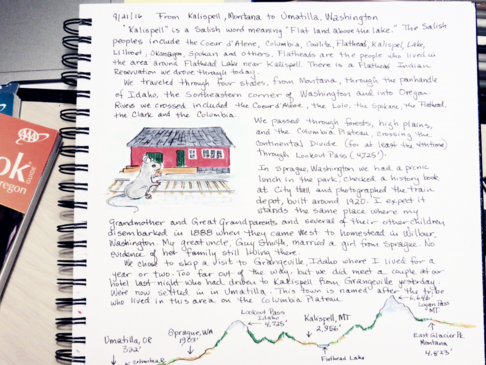 9/21/16 From Kalispell, Montana to Umatilla, Washington
"Kalispell" is a Salish word meaning "Flat land above the lake." The Salish
peoples include the Coeur d'Alene, Columbia, Cowlitz, Flathead, Kalispel, Lake,
Lillooet, Okanagan, Spokan and others. Flatheads are the people who lived in
the area around Flathead Lake near Kalispell. There is a Flathead Indian
Reservation we drove through today.
We traveled through four states, from Montana, through the panhandle
of Idaho, the Southeastern corner of Washington and into Oregon.
Rivers we crossed included the Coeur d'Alene, the Lolo, the Spokane, the Flathead,
the Clark and the Columbia.
We passed through forests, high plains,
and the Columbia Plateau, crossing the
Continental Divide (for at least the 4th time)
through Lookout Pass (4,725').
In Sprague, Washington we had a picnic
lunch in the park, checked a history book
at City Hall and photographed the train
depot, built around 1920. I expect it
stands the same place where my
grandmother and Great Grandparents and several of their other children
disembarked in 1888 when they came West to homestead in Wilbur,
Washington. My great uncle, Guy married a girl from Sprague. No
evidence of her family still living there.
We chose to skip a visit to Grangeville, Idaho where I lived for a
year or two. Too far out of the way, but we did meet a couple at our
hotel last night who had driven to Kalispell from Grangeville yesterday.
We're now settled in in Umatilla. This town is named after the tribe
who lived in this area on the Columbia Plateau.
Umatilla, OR
322'
Columbia R.
Sprague, WA
Lookout Pass
Idaho
4,725'
Kalispell, MT
2,956'
Flathead Lake
6,646'
Logan Pass
MT
East Glacier Pk
Montana
AAA
ok
regon
GUIDE